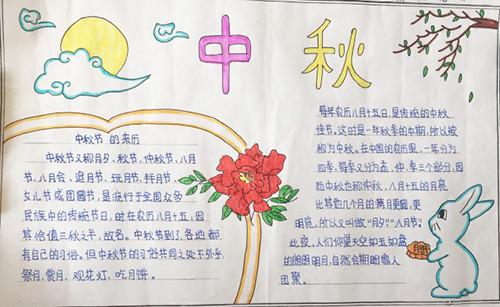 中秋
中秋节的来历
中秋节又称月夕、秋节、仲秋节、八月
节、八月会、追月节、玩月节、拜月节、
女儿节或团圆节,是流行于全国众多
民族中的传统节日,时在农历八月十五;因
其恰值三秋之半,故名。中秋节到了各地都
有自己的习俗。但中秋节的习俗共同之处不外乎
祭月、赏月、观花灯、吃月饼。
每年农历八月十五日,是传统的中秋
佳节。这时是一年秋季的中期,所以被
称为中秋。在中国的农历里,一年分为
四季,每季又分为孟、仲、季三个部分,因
而中秋也称仲秋。八月十五的月亮
比其他几个月的满月更圆,更
明亮,所以又叫做"月夕","八月节"。
此夜,人们仰望天空如玉如盘
的朗朗明月,自然会期盼家人
团聚。